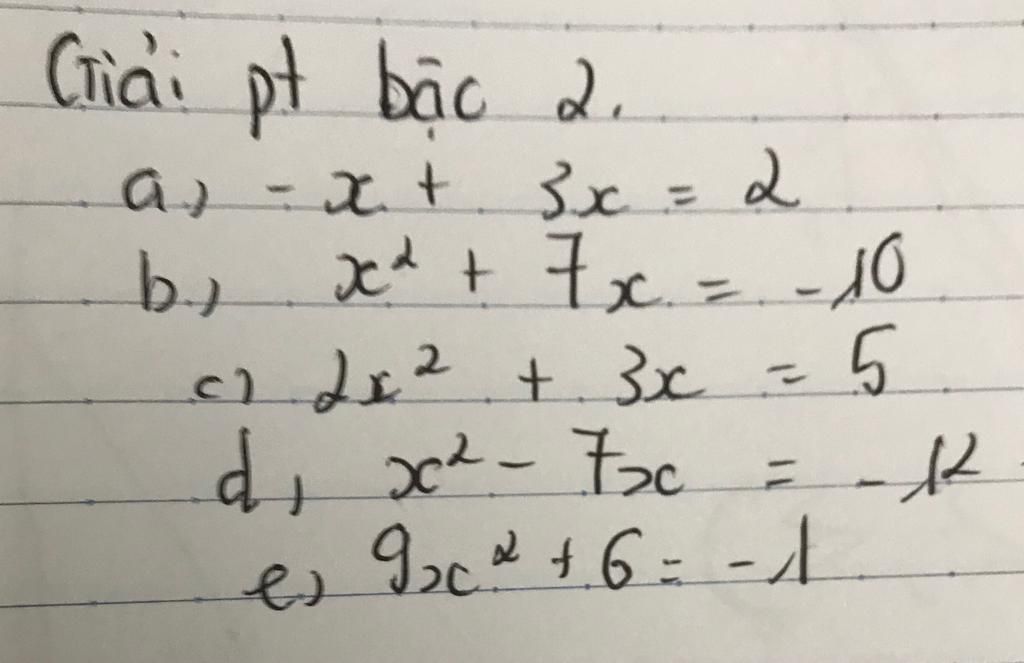 Giải pt bậc 2.
a, - x + 3x = 2
b, x² + 7x = -10
c) 2x² + 3x = 5
d, x² - 7x = -12
e) 9x² + 6 = -1